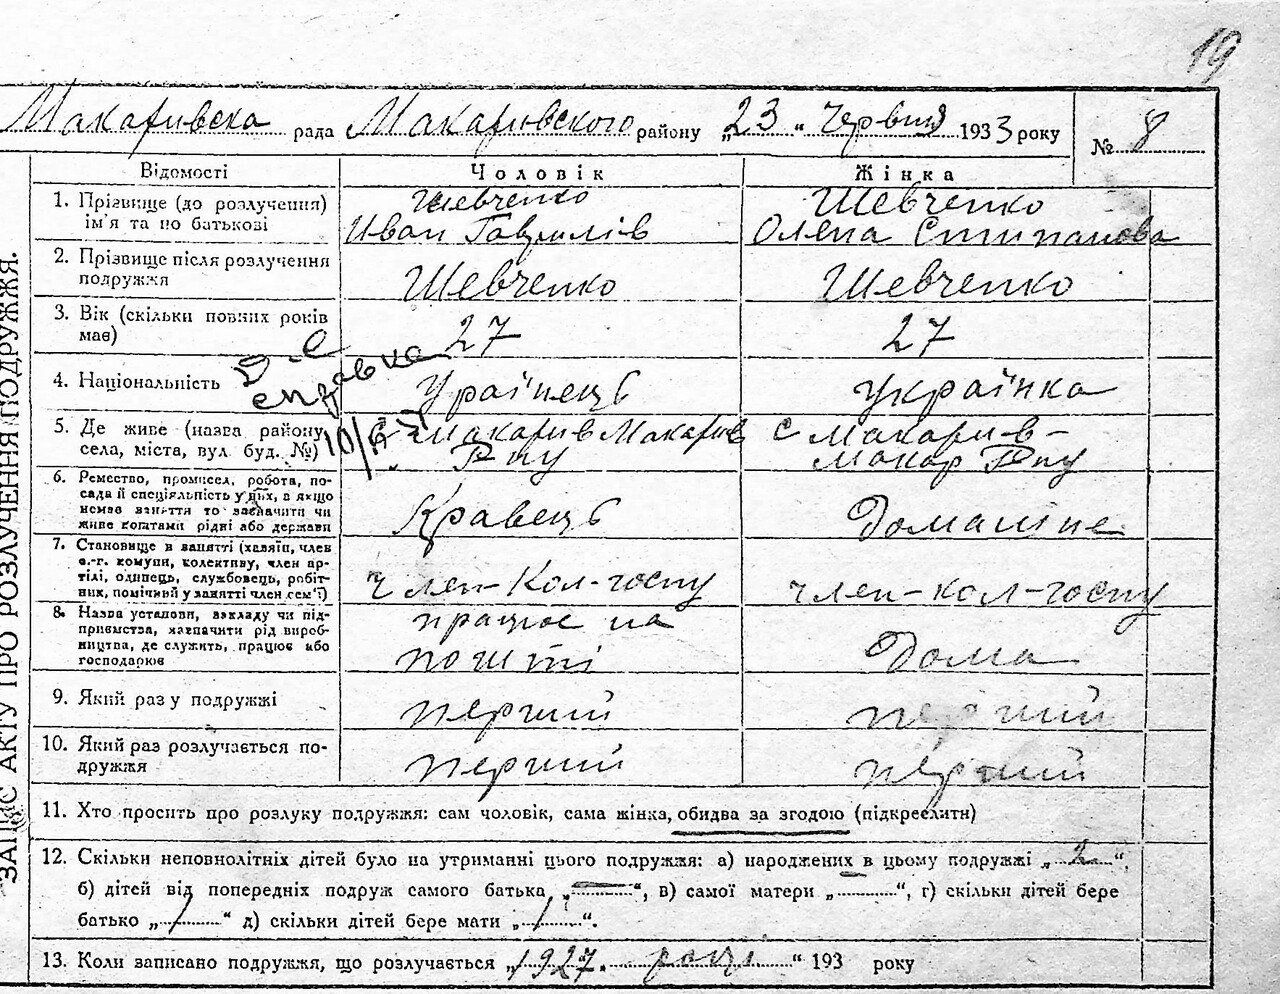 19
Макаривска рада Макаровского району „23“ Червня 1933 року
№ 8
ЗАПИС АКТУ ПРО РОЗЛУЧЕННЯ ПОДРУЖЖЯ.
Відомості Чоловік Жінка
1. Прізвище (до розлучення) ім'я та по батькові
Шевченко
Иван Гаврилів
Шевченко
Олена Стипанова
2. Прізвище після розлучення подружжя
Шевченко
Шевченко
3. Вік (скільки повних років має)
27
27
4. Національність
справка
Украінець
украінка
5. Де живе (назва району, села, міста, вул. буд. №)
с Макарив Макарив
Р-ну
с Макарив-
Макар Р-ну
6. Ремество, промисел, робота, по-
сада й спеціяльність у них, а якщо
немає заняття то зазначити чи
живе коштами рідні або держави
Кравець
Домашне
7. Становище в занятті (хазяїн, член
с.-г. комуни, колективу, член ар-
тілі, одинець, службовець, робіт-
ник, помічний у занятті член сем'ї)
член-Кол-госпу
член-кол-госпу
8. Назва установи, закладу чи під-
приємства, зазначити рід вироб-
ництва, де служить, працює або
господарює
працює на
пошті
Дома
9. Який раз у подружжі
перший
перший
10. Який раз розлучається по-
дружжя
перший
перший
11. Хто просить про розлуку подружжя: сам чоловік, сама жінка, обидва за згодою (підкреслити)
12. Скільки неповнолітніх дітей було на утриманні цього подружжя: а) народжених в цьому подружжі „2“,
б) дітей від попередніх подруж самого батька „—“, в) самої матери „......“, г) скільки дітей бере
батько „1“ д) скільки дітей бере мати „1“.
13. Коли записано подружжя, що розлучається „1927. році“ 193 року